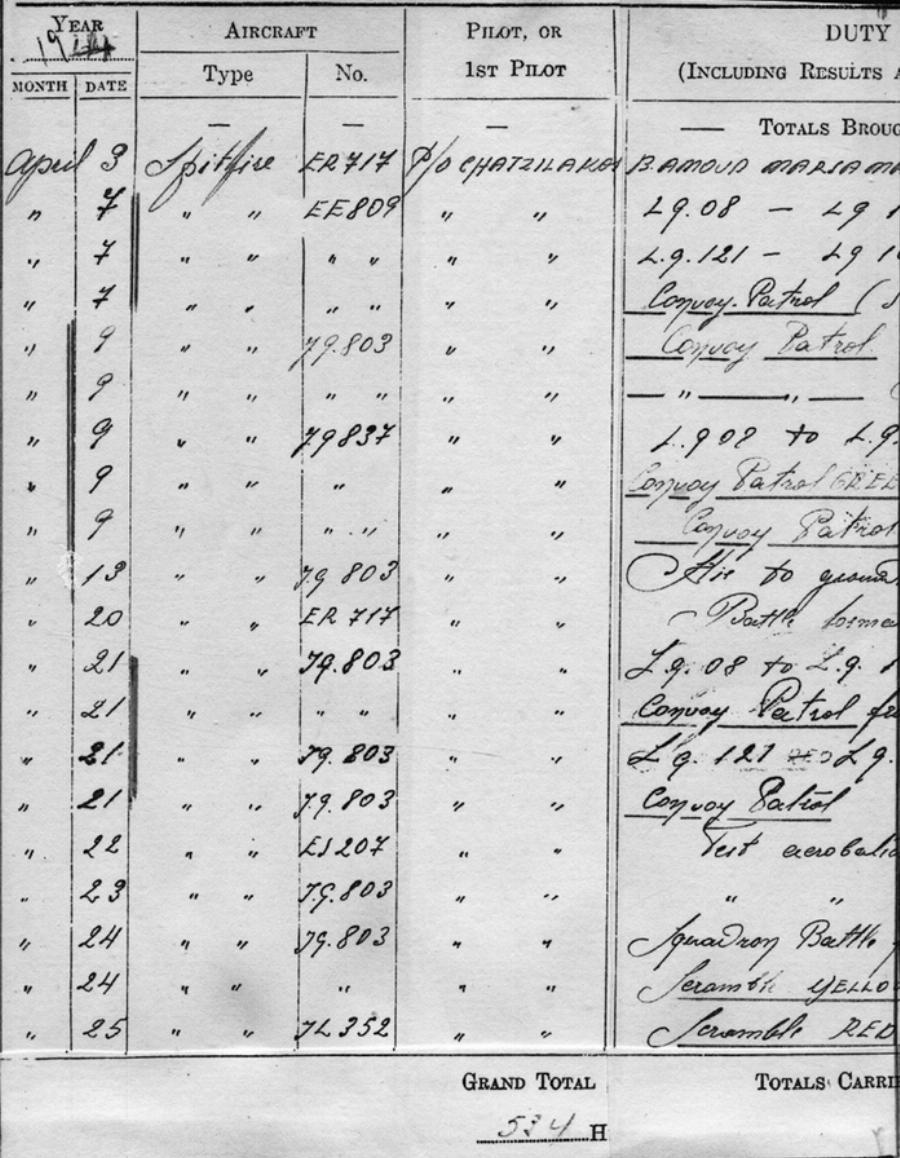 YEAR AIRCRAFT PILOT, OR DUTY
1944 1ST PILOT (INCLUDING RESULTS A
MONTH DATE Type No.
— — — — TOTALS BROUG
April 3 Spitfire ER717 P/O CHATZILAKOS B.AMOUD MARSA MA
" 7 " " EE809 " " Lg.08 - Lg 1
" 7 " " " " " " L.g.121 - Lg 1
" 7 " " " " " " Convoy Patrol (S
" 9 " " Jg.803 " " Convoy Patrol
" 9 " " " " " " — " — " —
" 9 " " Jg837 " " L.g 08 to L.g.
" 9 " " " " " Convoy Patrol GREE
" 9 " " " " " " Convoy Patrol
" 13 " " Jg 803 " " Air to ground
" 20 " " ER 717 " " Battle forma
" 21 " " Jg.803 " " L.g. 08 to L.g. 1
" 21 " " " " " " Convoy Patrol
" 21 " " Jg. 803 " " Lg. 121 Lg.
" 21 " " J.g. 803 " " Convoy Patrol
" 22 " " ES207 " " Test aerobatic
" 23 " " J.G.803 " " " "
" 24 " " Jg.803 " " Squadron Battle f
" 24 " " " " " Scramble YELLO
" 25 " " JL352 " " Scramble RED
GRAND TOTAL TOTALS CARRI
534 H